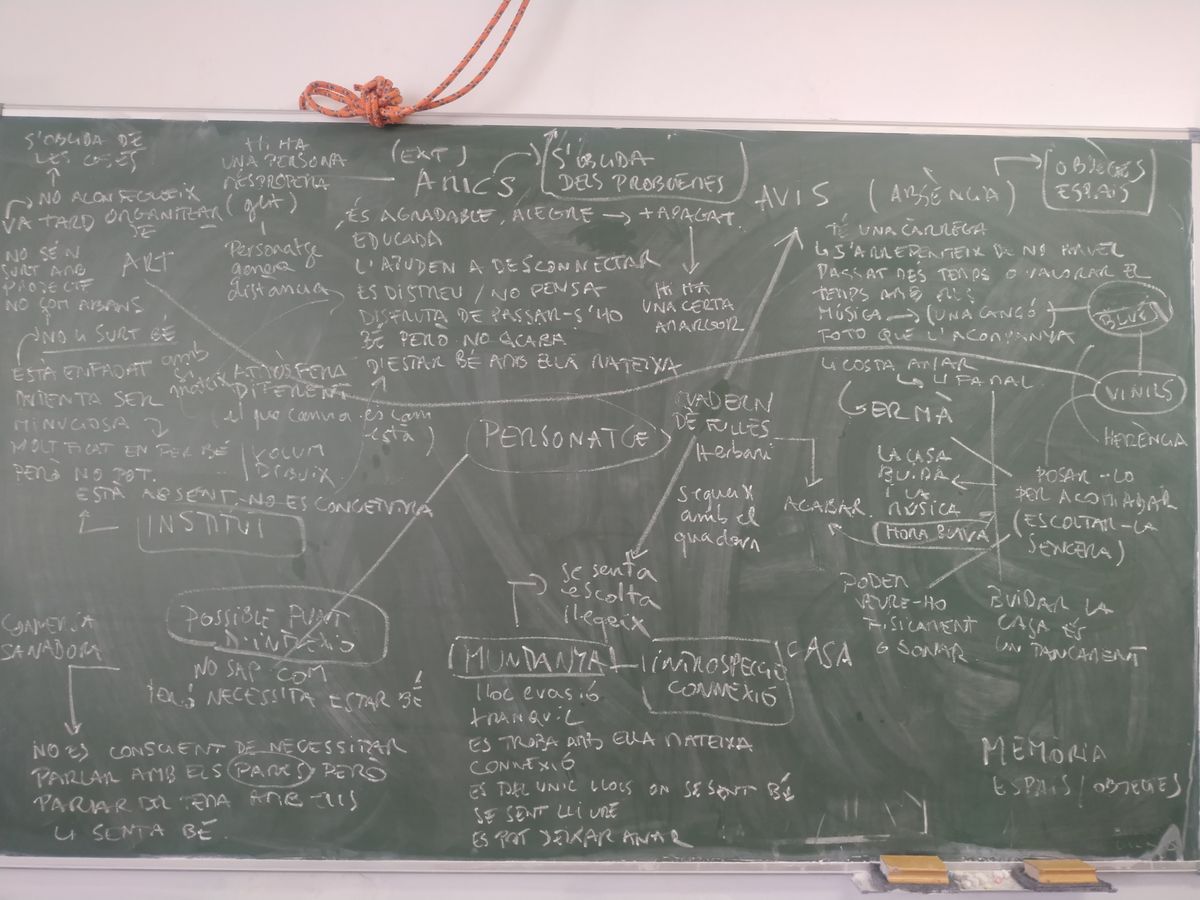 S'OBLIDA DE
LES COSES
NO ACONSEGUEIX
VA TARD ORGANITZAR
SE
ART
NO SE'N
SURT AMB
PROJECTE
NO COM ABANS
NO LI SURT BÉ
ESTÀ ENFADAT amb
si
mateix
INTENTA SER
MINUCIOSA
MOLTIFICAT EN FER BÉ
PERÒ NO POT.
VOLUM
DIBUIX
ESTÀ ABSENT-NO ES CONCENTRA
INSTITUT
HI HA
UNA PERSONA
MÉS PROPERA
Personatge
genera
distància
(ATMÒSFERA
DIFERENT
el que canvia és com
està)
(EXT)
AMICS
S'OBLIDA
DELS PROBLEMES
ÉS AGRADABLE, ALEGRE → + APAGAT
EDUCADA
L'AJUDEN A DESCONNECTAR
ES DISTREU / NO PENSA
DISFRUTA DE PASSAR-S'HO
BÉ PERÒ NO ACABA
D'ESTAR BÉ AMB ELLA MATEIXA
HI HA
UNA CERTA
AMARGOR
AVIS
(ABSÈNCIA)
OBJECTES
ESPAIS
TÉ UNA CÀRREGA
S'ARREPENTEIX DE NO HAVER
PASSAT MÉS TEMPS O VALORAR EL
TEMPS AMB ELLS
MÚSICA → (UNA CANÇÓ
BLUES
FOTO QUE L'ACOMPANYA
LI COSTA ANAR
VINILS
HERÈNCIA
GERMÀ
PERSONATGE
QUADERN
DE FULLES
Herbari
segueix
amb el
quadern
ACABAR
LA CASA
BUIDA
I LA
MÚSICA
HORA BLAVA
POSAR-LO
PER ACOMIADAR
(ESCOLTAR-LA
SENCERA)
PODER
VEURE-HO
FÍSICAMENT
O SONAR
BUIDAR LA
CASA ÉS
UN TANCAMENT
se senta
escolta
i llegeix
MUNTANYA
INTROSPECCIÓ
CONNEXIÓ
CASA
lloc evasió
tranquil
ES TROBA AMB ELLA MATEIXA
CONNEXIÓ
ES DEL UNIC LLOCS ON SE SENT BÉ
SE SENT LLIURE
ES POT DEIXAR ANAR
POSSIBLE PUNT
D'INFLEXIÓ
NO SAP COM
NECESSITA ESTAR BÉ
CONVERSA
SANADORA
NO ES CONSCIENT DE NECESSITAR
PARLAR AMB ELS PARES PERÒ
PARLAR DEL TEMA AMB ELLS
LI SENTA BÉ.
MEMÒRIA
ESPAIS / OBJECTES